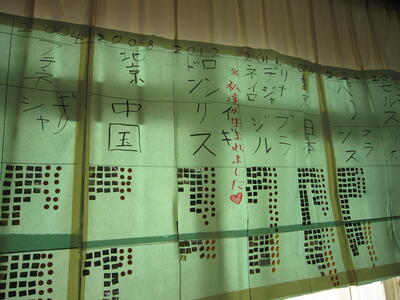 2004
アテネ
ギリ
シャ
2008
北京
中国
2012
ロン
ドン
イギ
リス
※私達が生まれました♡
2016
デジャ
ネイロ
ブラ
ジル
東京
日本
パリ
フラ
ンス